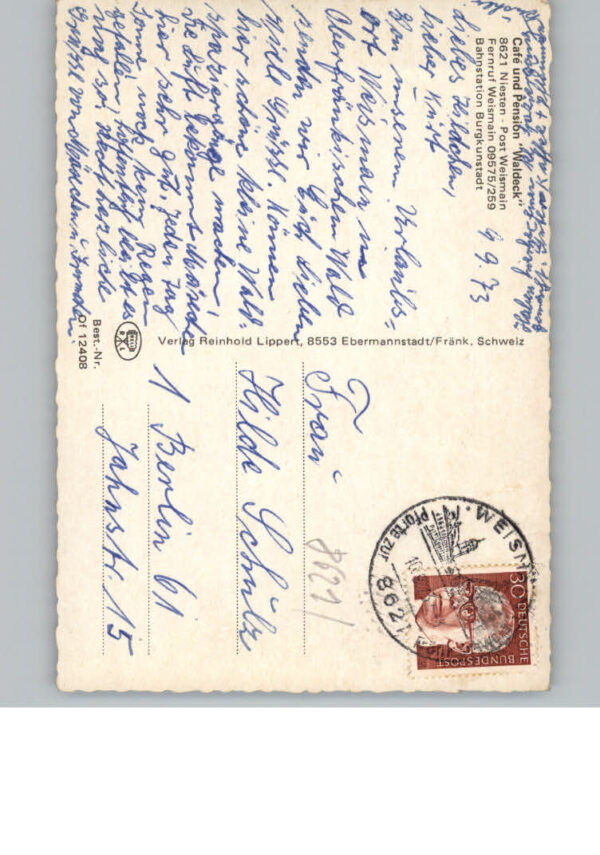 Café und Pension "Waldeck"
8621 Niesten - Post Weismain
Fernruf Weismain 09575/259
Bahnstation Burgkunstadt
9.9.73
Liebes Hildchen,
lieber Kurt
Von unserem Urlaubs=
ort Weismain im
Oberfränkischen Wald
senden wir Euch lieben
viele Grüße. Können
hier schöne kleine Wald-
spaziergänge machen,
die Luft bekommt
hier sehr gut, jeden Tag
Sonne noch kein Regen
gefallen,
herzliche
Grüße von
Best.-Nr. Of 12408
Verlag Reinhold Lippert, 8553 Ebermannstadt/Fränk. Schweiz
Frau
Hilde Schulz
1 Berlin 61
Jahnstr. 15
8621
WEISM
Pforte zur
8621
30
DEUTSCHE
BUNDESPOST